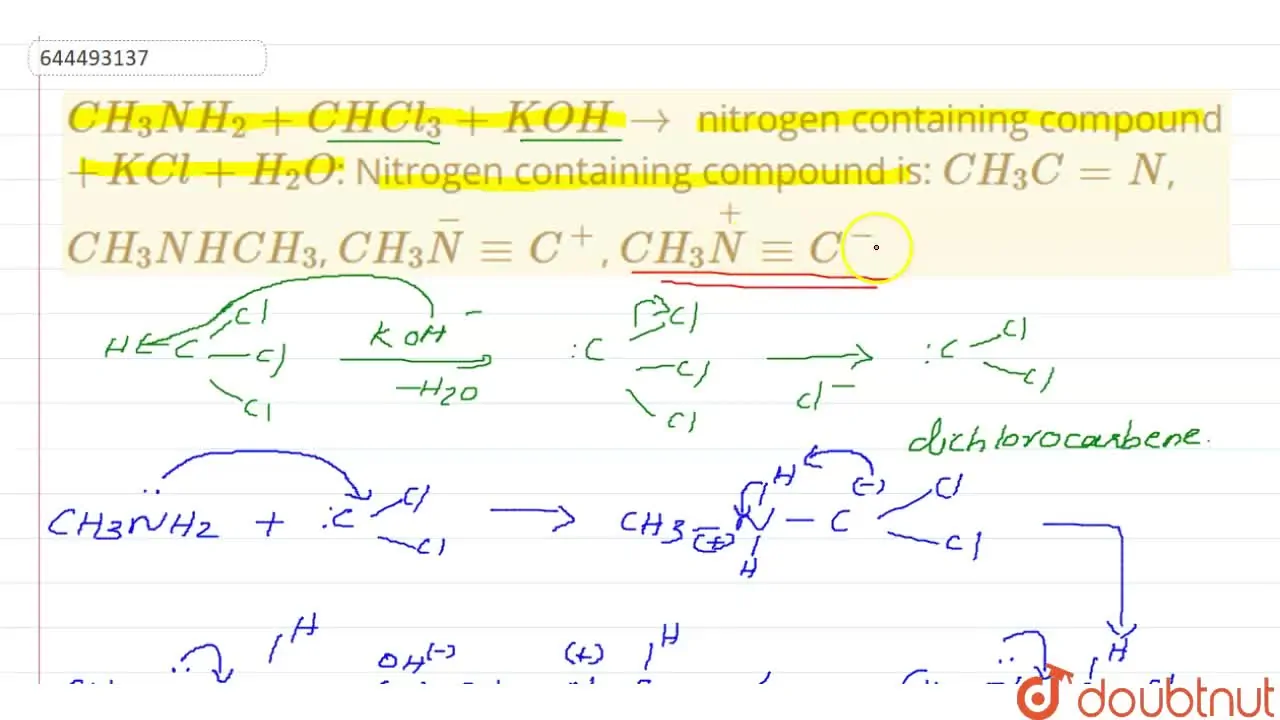 644493137
CH₃NH₂ + CHCl₃ + KOH → nitrogen containing compound
+ KCl + H₂O: Nitrogen containing compound is: CH₃C = N,
CH₃NHCH₃, CH₃N̄ ≡ C⁺, CH₃N⁺ ≡ C⁻
H C Cl Cl Cl KOH⁻ -H₂O :C Cl Cl Cl → Cl⁻ :C Cl Cl
dichlorocarbene.
CH₃N̈H₂ + :C Cl Cl → CH₃ - N (+) H H - C (-) Cl Cl
H OH(-) (+) H H
doubtnut